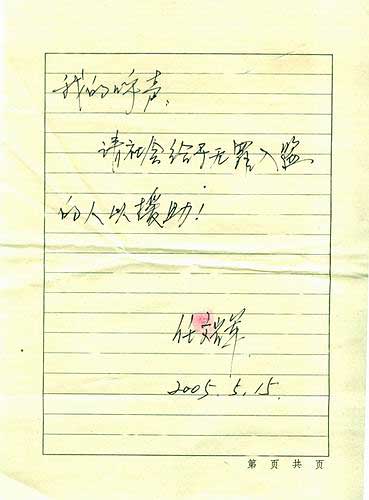 我的呼声:
请社会给予无罪入监
的人以援助!
任文辉
2005.5.15.
第 页 共 页